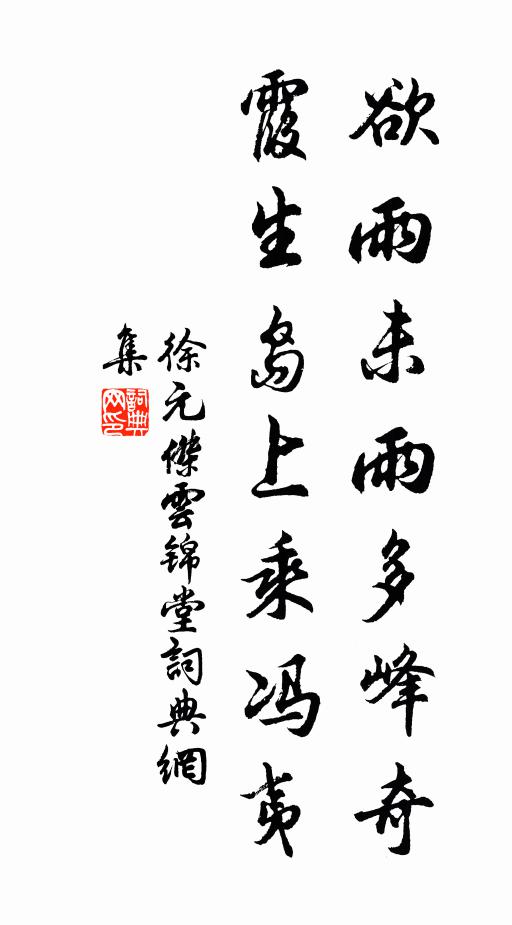 欲雨未雨多峰奇
霞生岛上乘冯夷
徐元傑雲锦堂詞典網
集
詞典網印